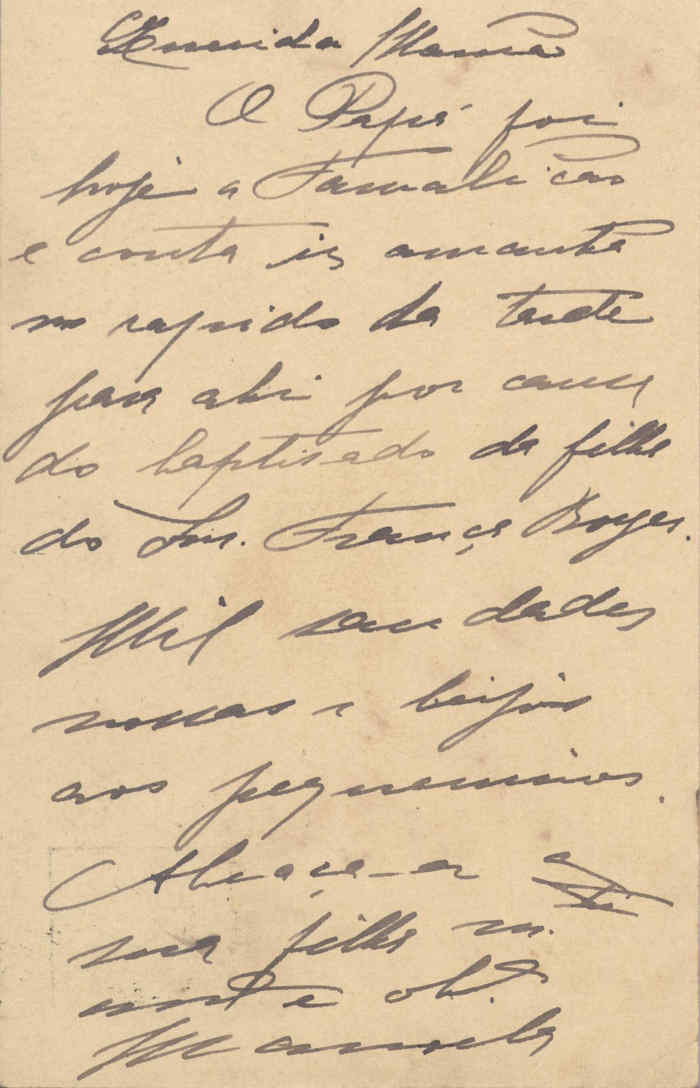 Querida Mamã
O Papá foi
hoje a Famalicão
e conta ir amanhã
no rapido da tarde
para ahi por causa
do baptisado da filha
do Snr. França Borges.
Mil saudades
nossas e beijos
aos pequeninos.
Abraça-a a
sua filha m.
mt.º e ob.ª
Manuela